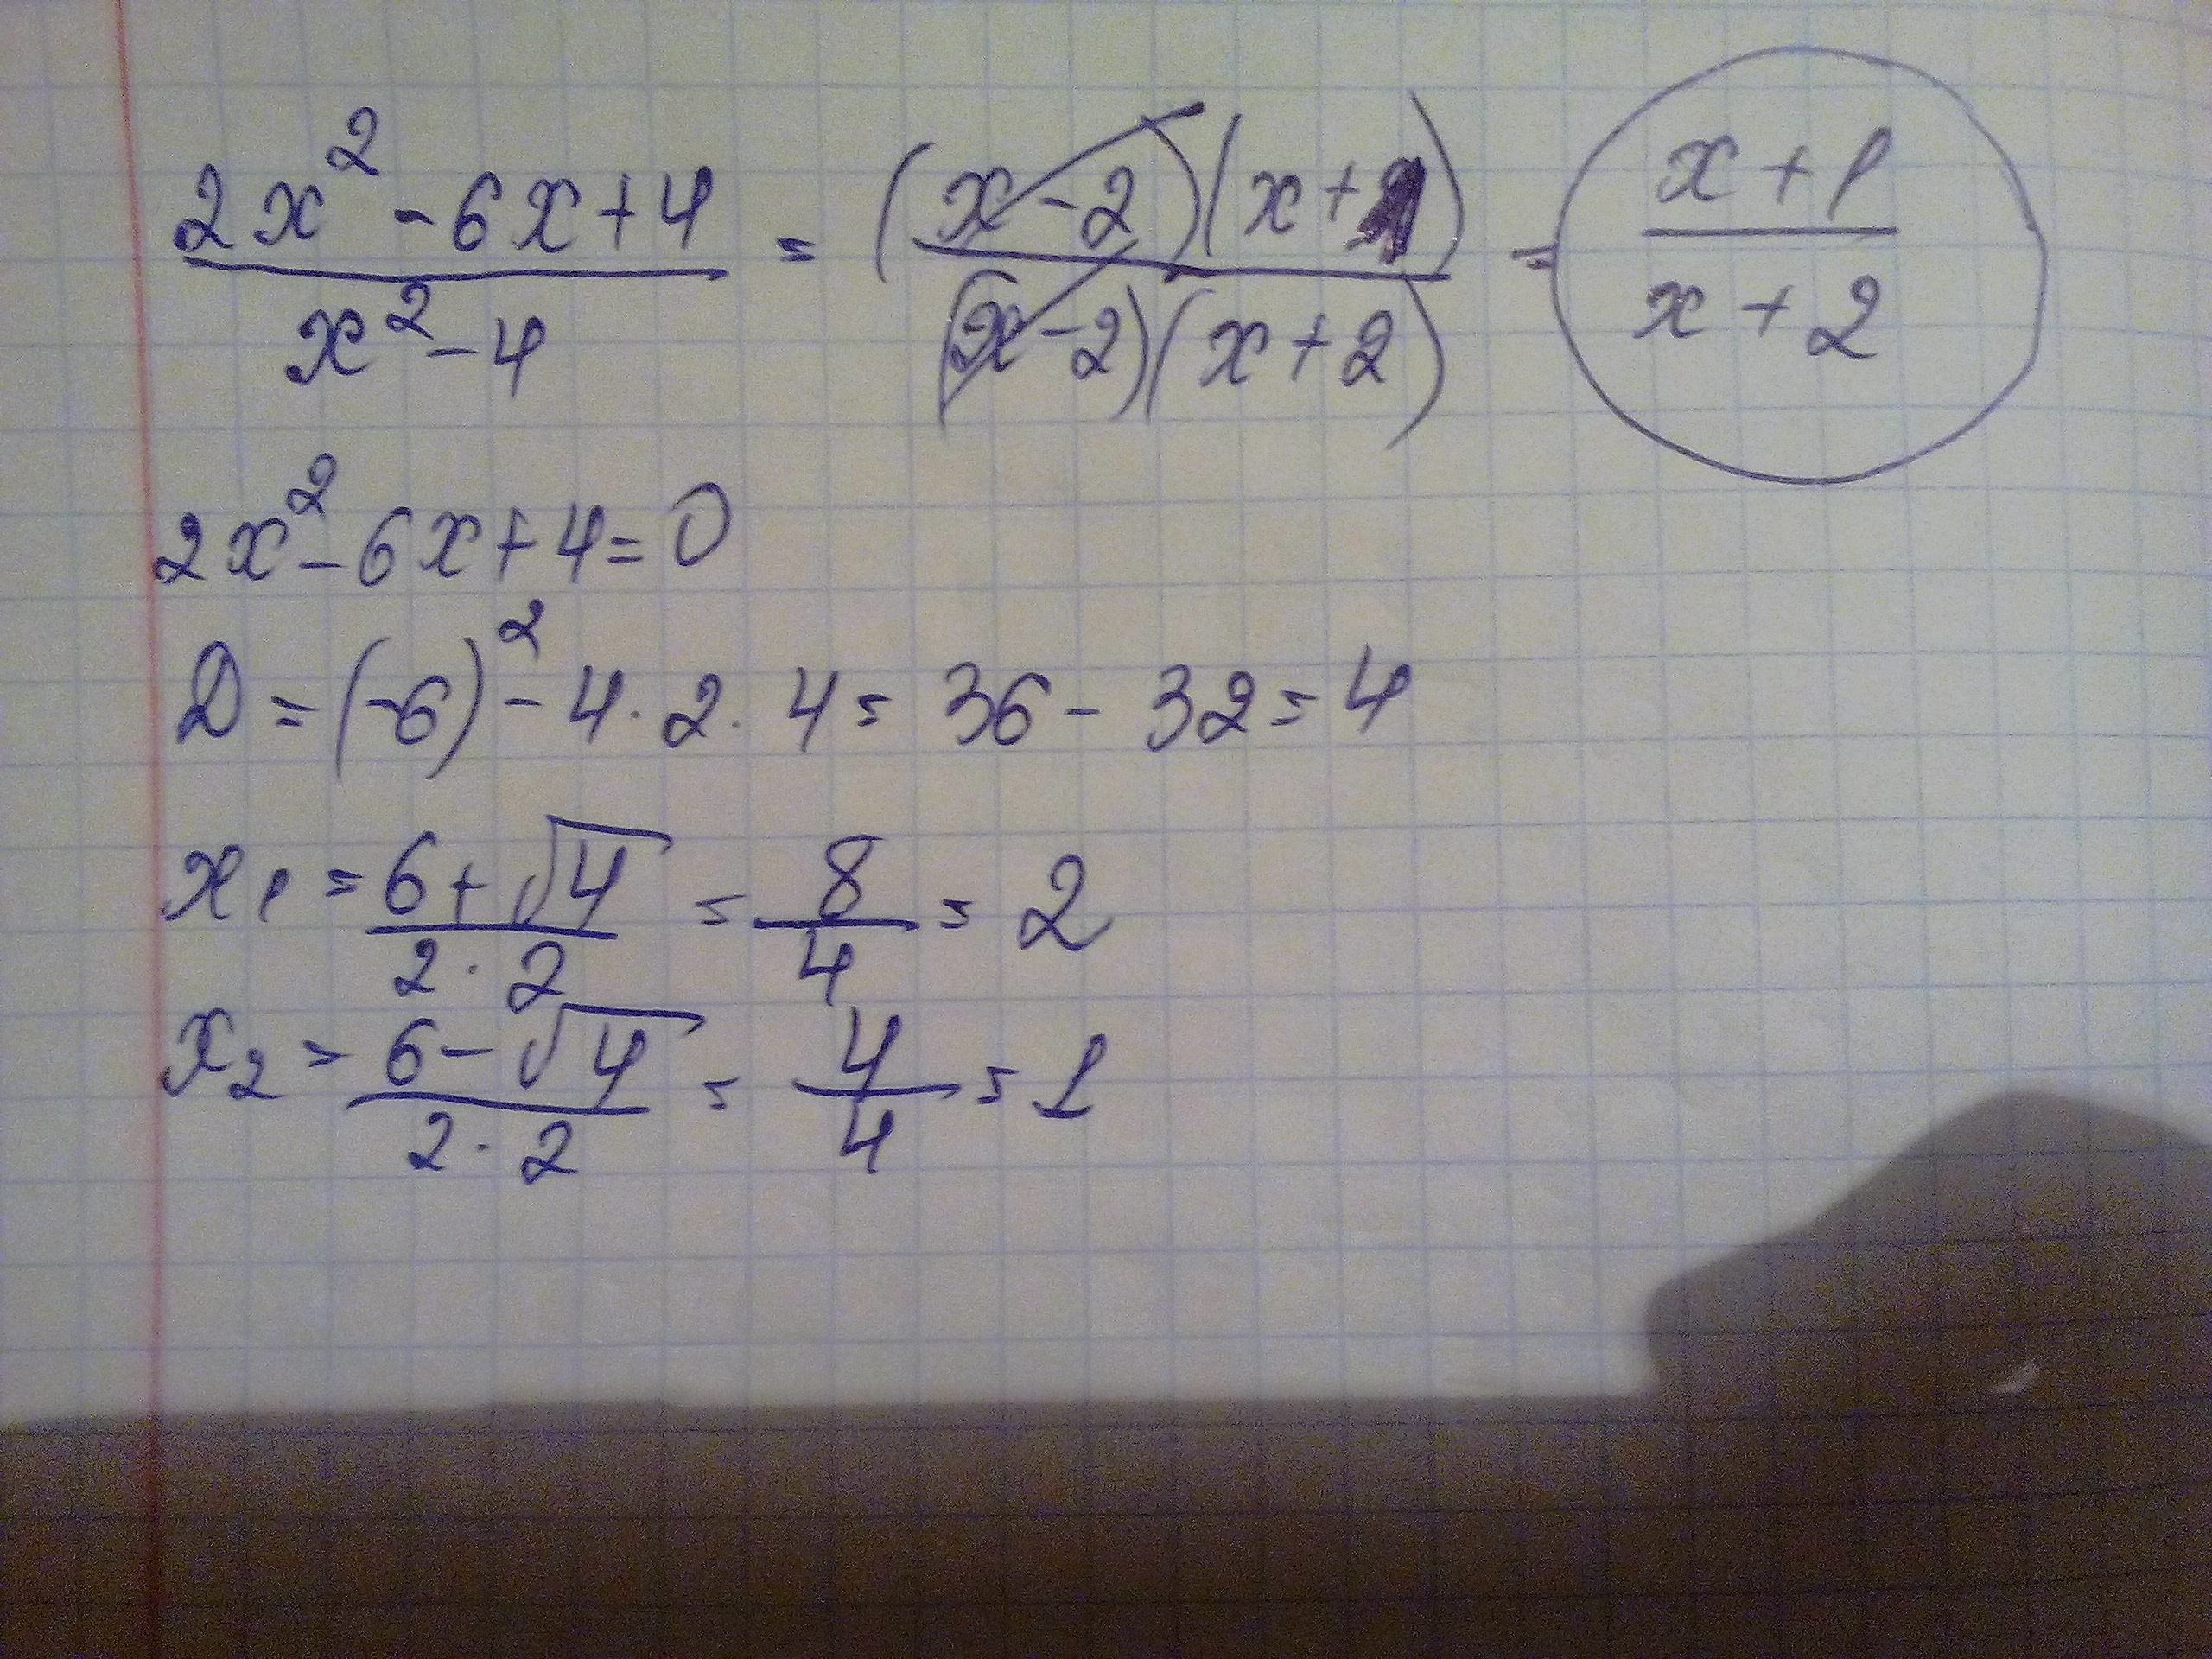 2x² - 6x + 4 / x² - 4 = (x - 2)(x + 1) / (x - 2)(x + 2) = x + 1 / x + 2
2x² - 6x + 4 = 0
D = (-6)² - 4 · 2 · 4 = 36 - 32 = 4
x₁ = 6 + √4 / 2 · 2 = 8 / 4 = 2
x₂ = 6 - √4 / 2 · 2 = 4 / 4 = 1